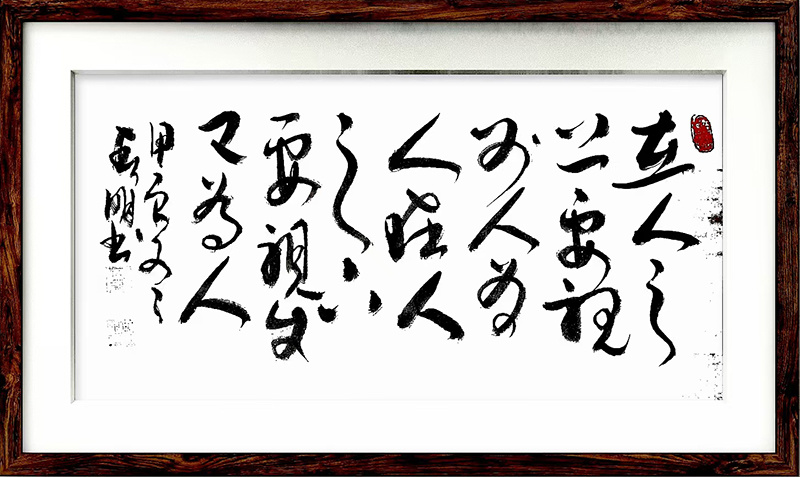 在人之
上要视
别人为
人在人
之下
要视自
己为人
甲辰冬
明书